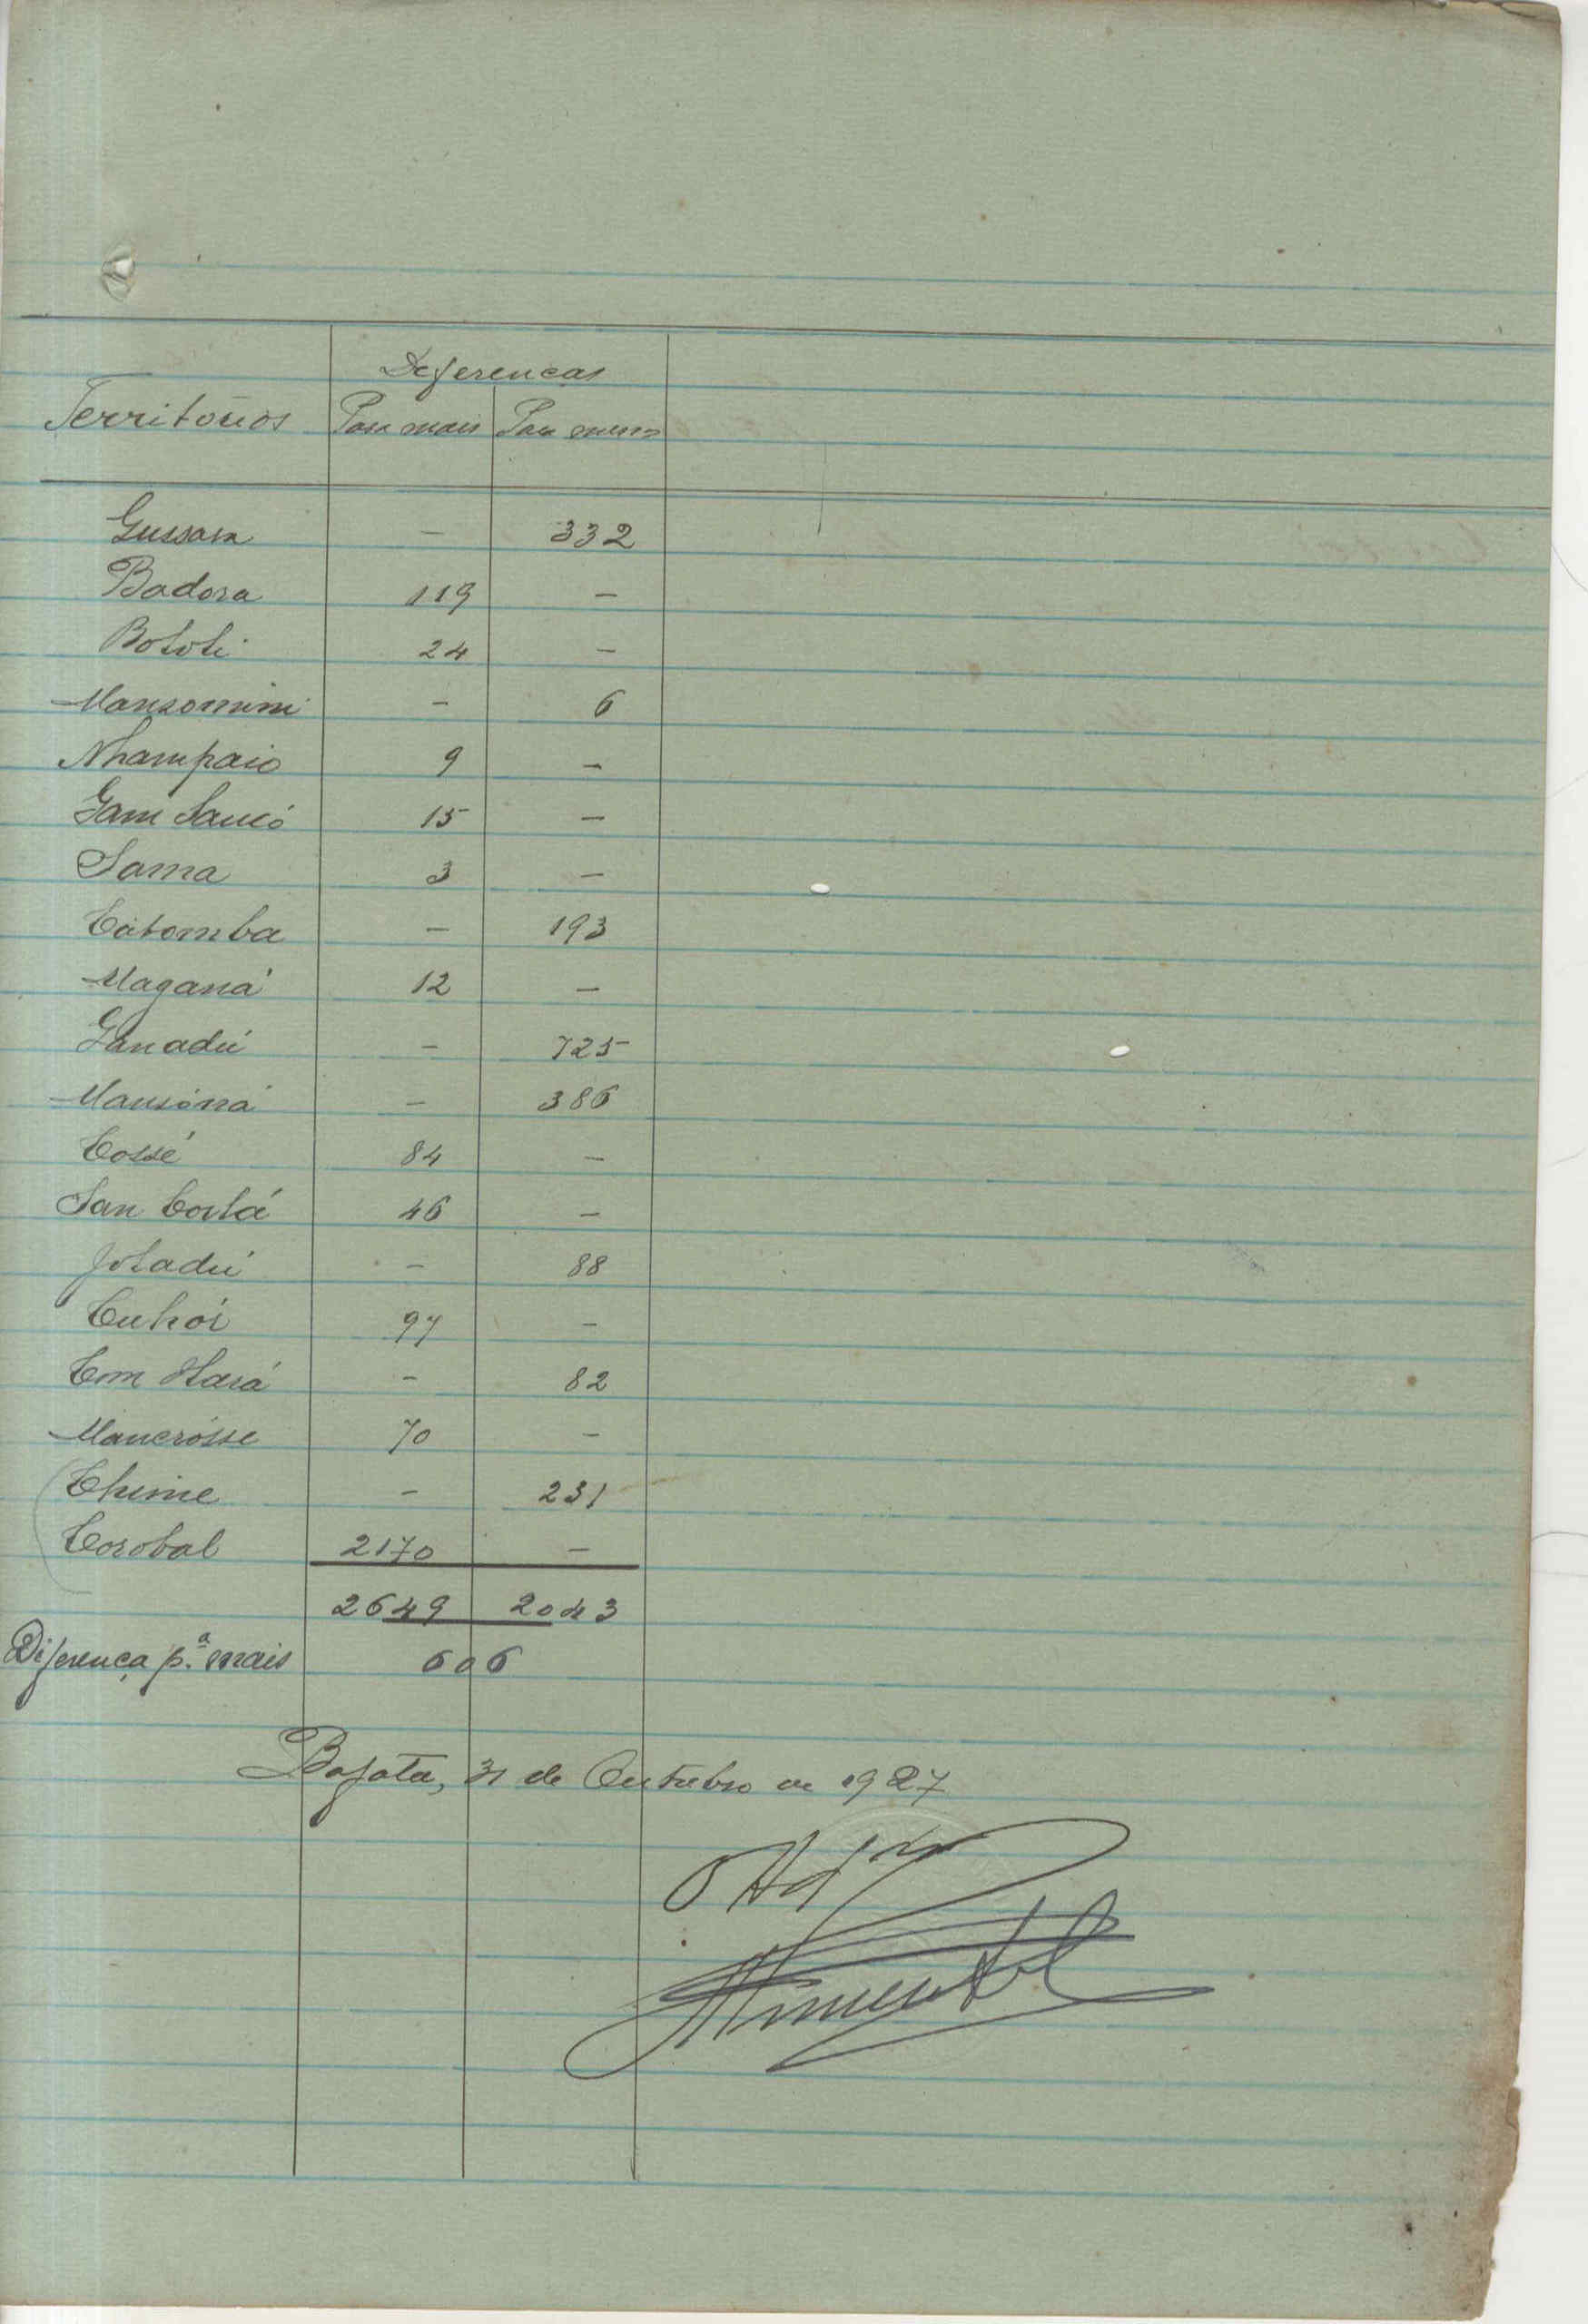 Deferenças
Territórios Para mais Para menos
Gussara — 332
Badora 119 —
Bototi 24 —
Mansomini — 6
Nhampaio 9 —
Gam Sancó 15 —
Sama 3 —
Catomba — 193
Maganá 12 —
Ganadú — 725
Mansóná — 386
Cossé 84 —
San Corlá 46 —
Joladú — 88
Cuhói 97 —
Com Hará — 82
Mancrósse 70 —
Chime — 231
Corobal 2170 —
2649 2043
Diferença p.ª mais 606
Bafata, 31 de Outubro de 1927
O Ad
Pimentel